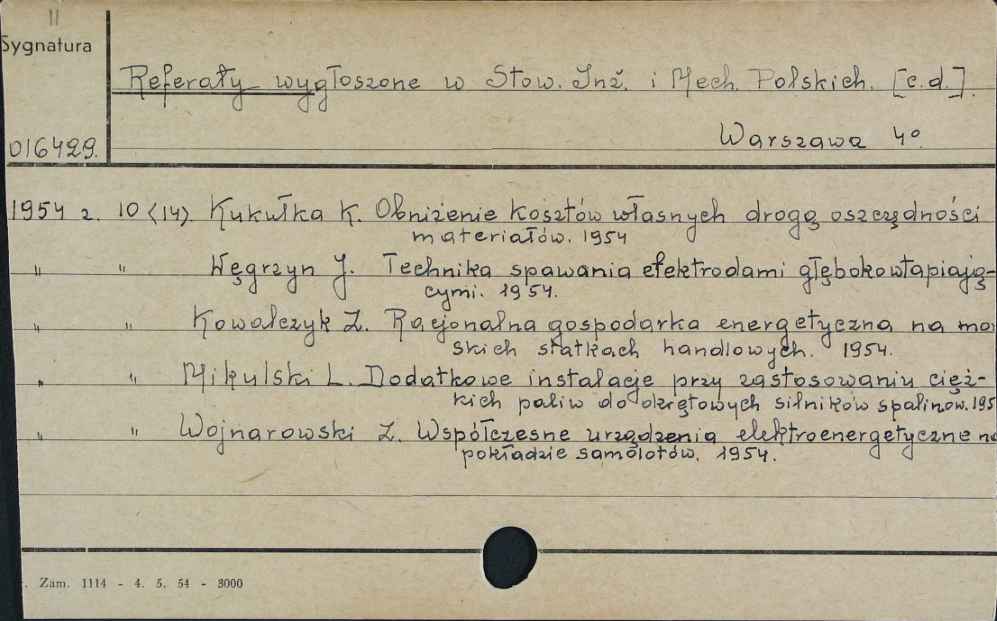 II
Sygnatura
Referaty wygłoszone w Stow. Inż. i Mech. Polskich. [c.d.].
Warszawa 4°
016429.
1954 r. 10 <14> Kukułka K. Obniżenie kosztów własnych drogą oszczędności
materiałów. 1954
" " Węgrzyn J. Technika spawania elektrodami głębokowtapiają-
cymi. 1954.
" " Kowalczyk Z. Racjonalna gospodarka energetyczna na mor
skich statkach handlowych. 1954.
" " Mikulski L. Dodatkowe instalacje przy zastosowaniu cięż-
kich paliw do okrętowych silników spalinow. 195
" " Wojnarowski Z. Współczesne urządzenia elektroenergetyczne na
pokładzie samolotów. 1954.
. Zam. 1114 - 4. 5. 54 - 3000